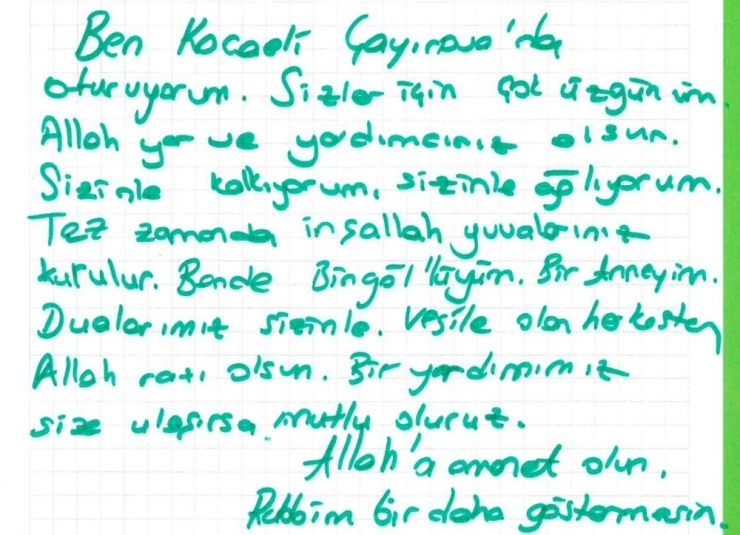 Ben Kocaeli Çayırova'da
oturuyorum. Sizler için çok üzgünüm.
Allah yar ve yardımcınız olsun.
Sizinle kalkıyorum, sizinle ağlıyorum.
Tez zamanda inşallah yuvalarınız
kurulur. Bende Bingöl'lüyüm. Bir Anneyim.
Dualarımız sizinle. Veşile olan herkesten
Allah razı olsun. Bir yardımımız
size ulaşırsa mutlu oluruz.
Allah'a emanet olun.
Rabbim bir daha göstermesin.